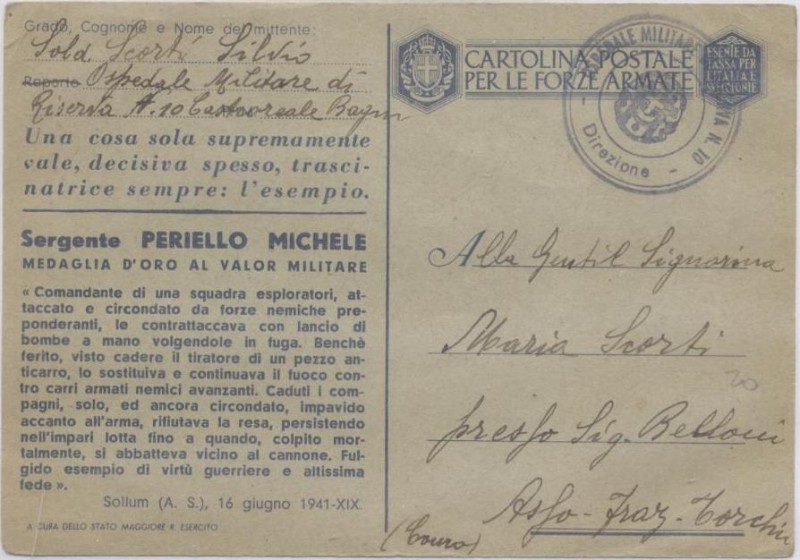 Grado, Cognome e Nome del mittente:
Sold Scorti Silvio
Reparto Ospedale Militare di
Riserva N. 10 Castroreale Bagni
Una cosa sola supremamente
vale, decisiva spesso, trasci-
natrice sempre: l'esempio.
Sergente PERIELLO MICHELE
MEDAGLIA D'ORO AL VALOR MILITARE
« Comandante di una squadra esploratori, at-
taccato e circondato da forze nemiche pre-
ponderanti, le contrattaccava con lancio di
bombe a mano volgendole in fuga. Benchè
ferito, visto cadere il tiratore di un pezzo an-
ticarro, lo sostituiva e continuava il fuoco con-
tro carri armati nemici avanzanti. Caduti i com-
pagni, solo, ed ancora circondato, impavido
accanto all'arma, rifiutava la resa, persistendo
nell'impari lotta fino a quando, colpito mor-
talmente, si abbatteva vicino al cannone. Ful-
gido esempio di virtù guerriere e altissima
fede ».
Sollum (A. S.), 16 giugno 1941-XIX.
A CURA DELLO STATO MAGGIORE R. ESERCITO
CARTOLINA POSTALE
PER LE FORZE ARMATE
ESENTE DA
TASSA PER
L'ITALIA E
MILITARE
N. 10
- Direzione -
Alla Gentil Signorina
Maria Scorti
20
presso Sig. Belloni
Asso - Fraz.
(Como)